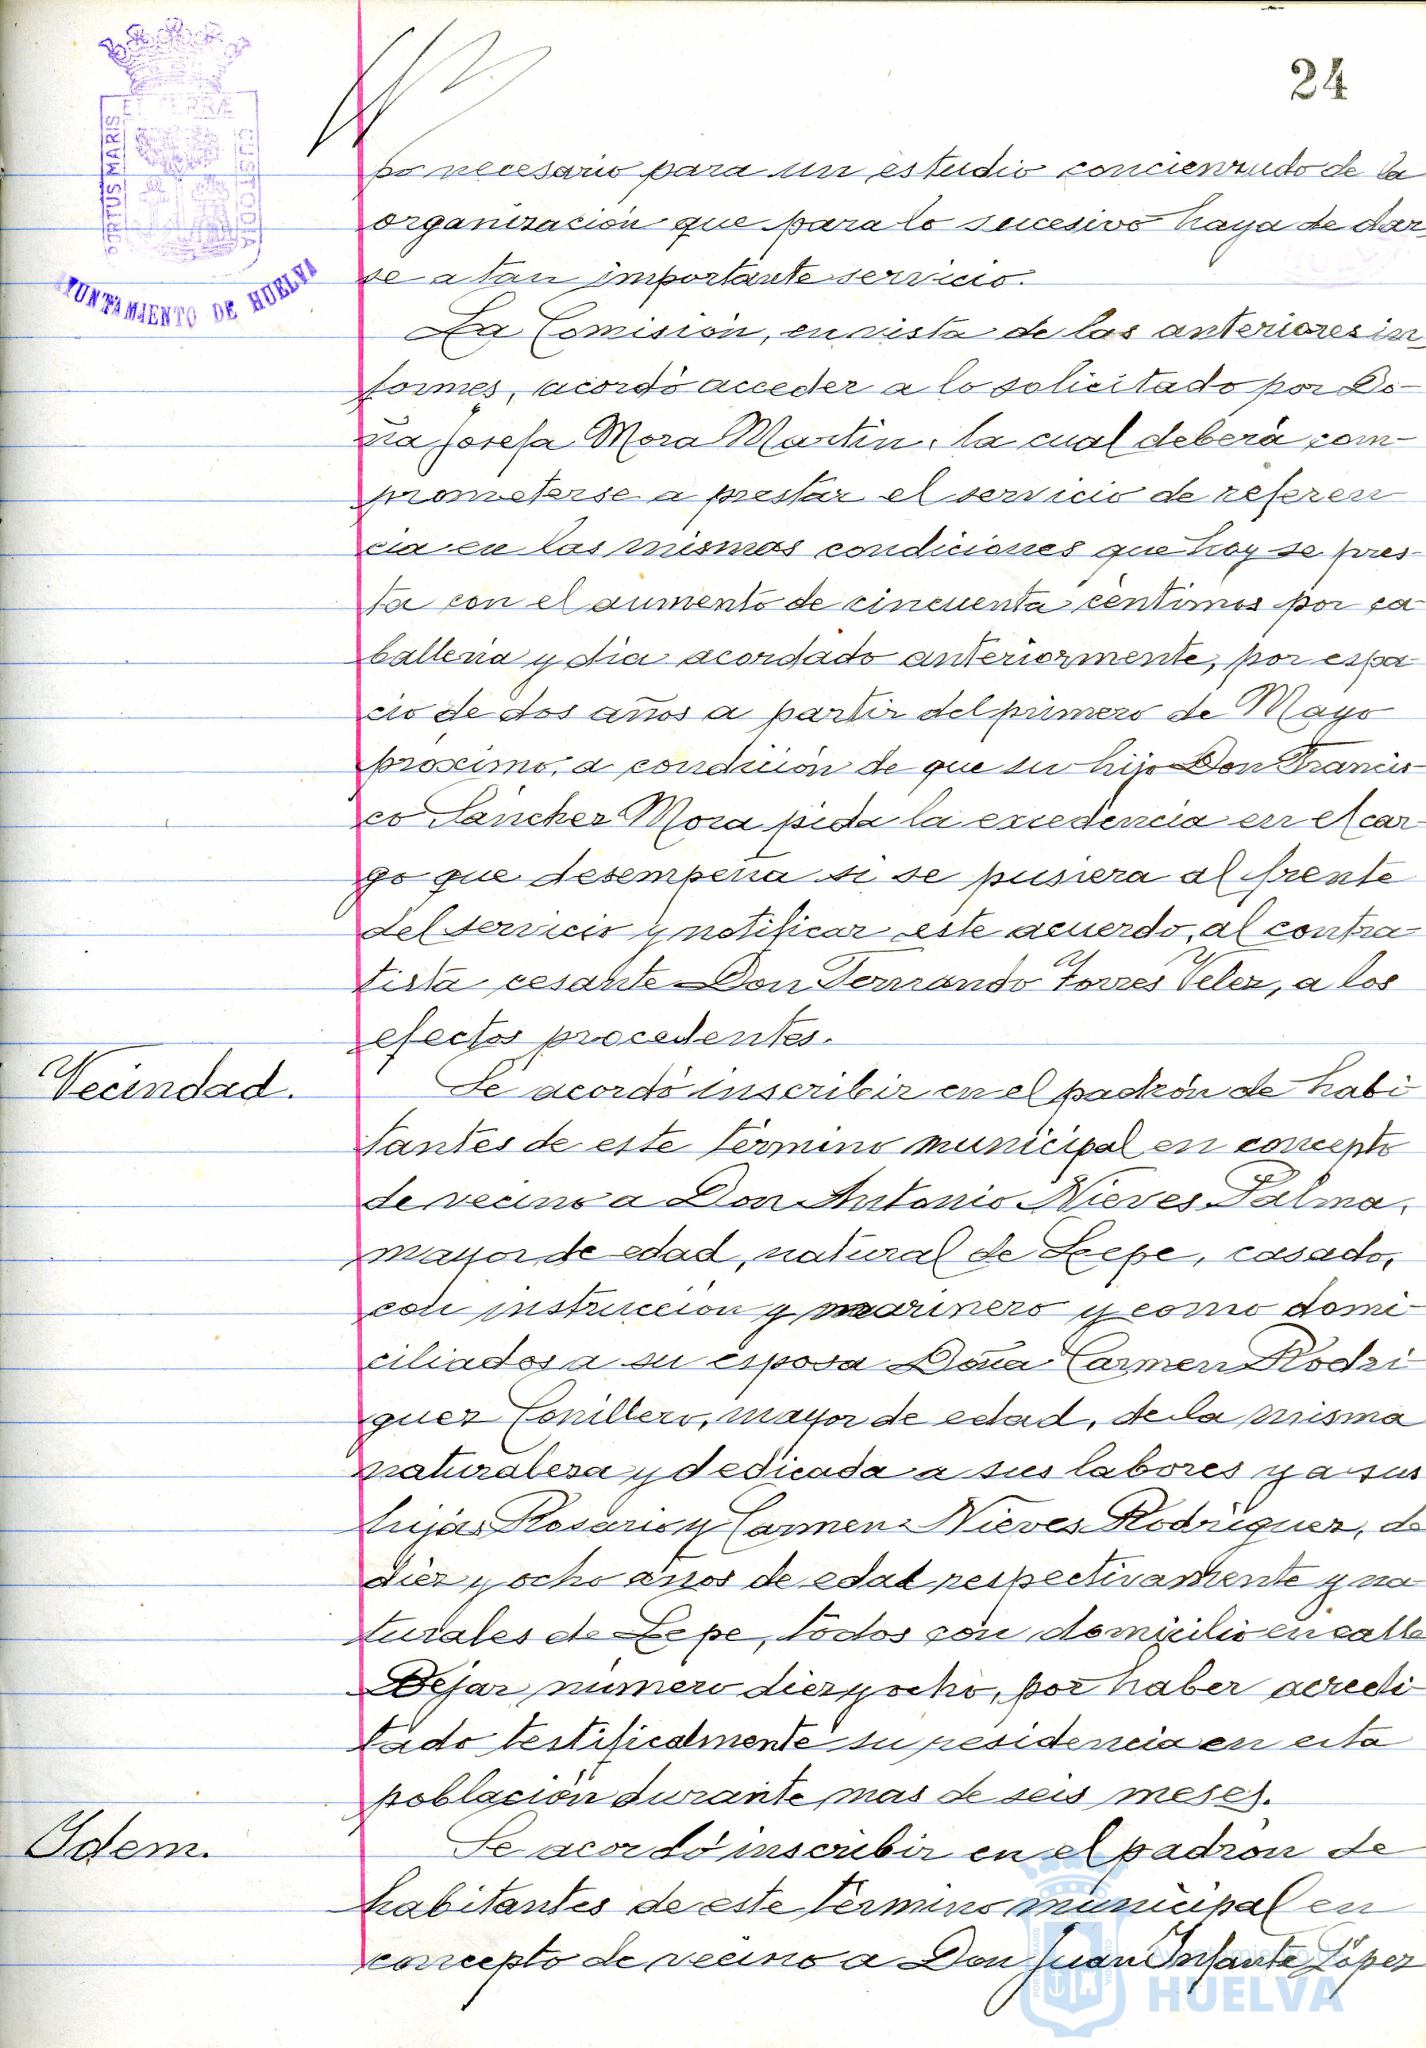 24
PORTUS MARIS ET TERRÆ CUSTODIA
AYUNTAMIENTO DE HUELVA
po necesario para un estudio concienzudo de la
organización que para lo sucesivo haya de dar-
se a tan importante servicio.
La Comisión, en vista de las anteriores in-
formes, acordó acceder a lo solicitado por Do-
ña Josefa Mora Martin, la cual deberá com-
prometerse a prestar el servicio de referen
cia en las mismas condiciones que hoy se pres-
ta con el aumento de cincuenta céntimos por ca
ballería y día acordado anteriormente, por espa-
cio de dos años a partir del primero de Mayo
próximo, a condición de que su hijo Don Francis-
co Sánchez Mora pida la excedencia en el car-
go que desempeña si se pusiera al frente
del servicio y notificar este acuerdo, al contra-
tista cesante Don Fernando Torres Velez, a los
efectos procedentes.
Vecindad.
Se acordó inscribir en el padrón de habi
tantes de este término municipal en concepto
de vecino a Don Antonio Nieves Palma,
mayor de edad, natural de Lepe, casado,
con instrucción y marinero y como domi-
ciliados a su esposa Doña Carmen Rodri-
guez Conillero, mayor de edad, de la misma
naturaleza y dedicada a sus labores y a sus
hijas Rosario y Carmen Nieves Rodríguez, de
diez y ocho años de edad respectivamente y na
turales de Lepe, todos con domicilio en calle
Bejar número diez y ocho, por haber acredi-
tado testificalmente su residencia en esta
población durante mas de seis meses.
Ydem.
Se acordó inscribir en el padrón de
habitantes de este término municipal en
concepto de vecino a Don Juan Infante López
Ayuntamiento de
HUELVA